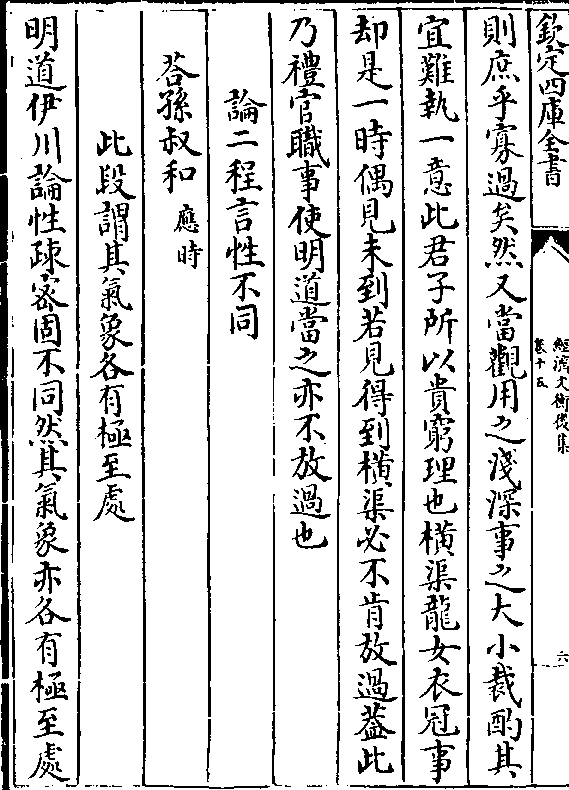 欽定四庫全書
經濟文衡後集
卷十五
六
則庶乎寡過矣然又當觀用之淺深事之大小裁酌其
宜難執一意此君子所以貴窮理也橫渠龍女衣冠事
却是一時偶見未到若見得到橫渠必不肯放過蓋此
乃禮官職事使明道當之亦不放過也
論二程言性不同
荅孫叔和應時
此段謂其氣象各有極至處
明道伊川論性疎密固不同然其氣象亦各有極至處